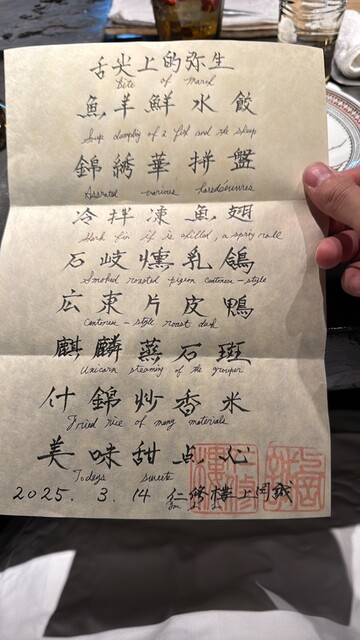 舌尖上的弥生
Bite of March
魚羊鮮水餃
Soup dumpling of a fish and the sheep
錦綉華拼盤
Assorted various horsd'oeuvres
冷拌凍魚翅
Shark fin it is chilled, a spring roll
石岐燻乳鴿
Smoked roasted pigeon cantonese-style
広東片皮鴨
Cantonese-style roast duck
麒麟蒸石斑
Unicorn steaming of the grouper
什錦炒香米
Fried rice of many materials
美味甜点心
Todays sweets
2025. 3. 14 仁修樓上岡誠